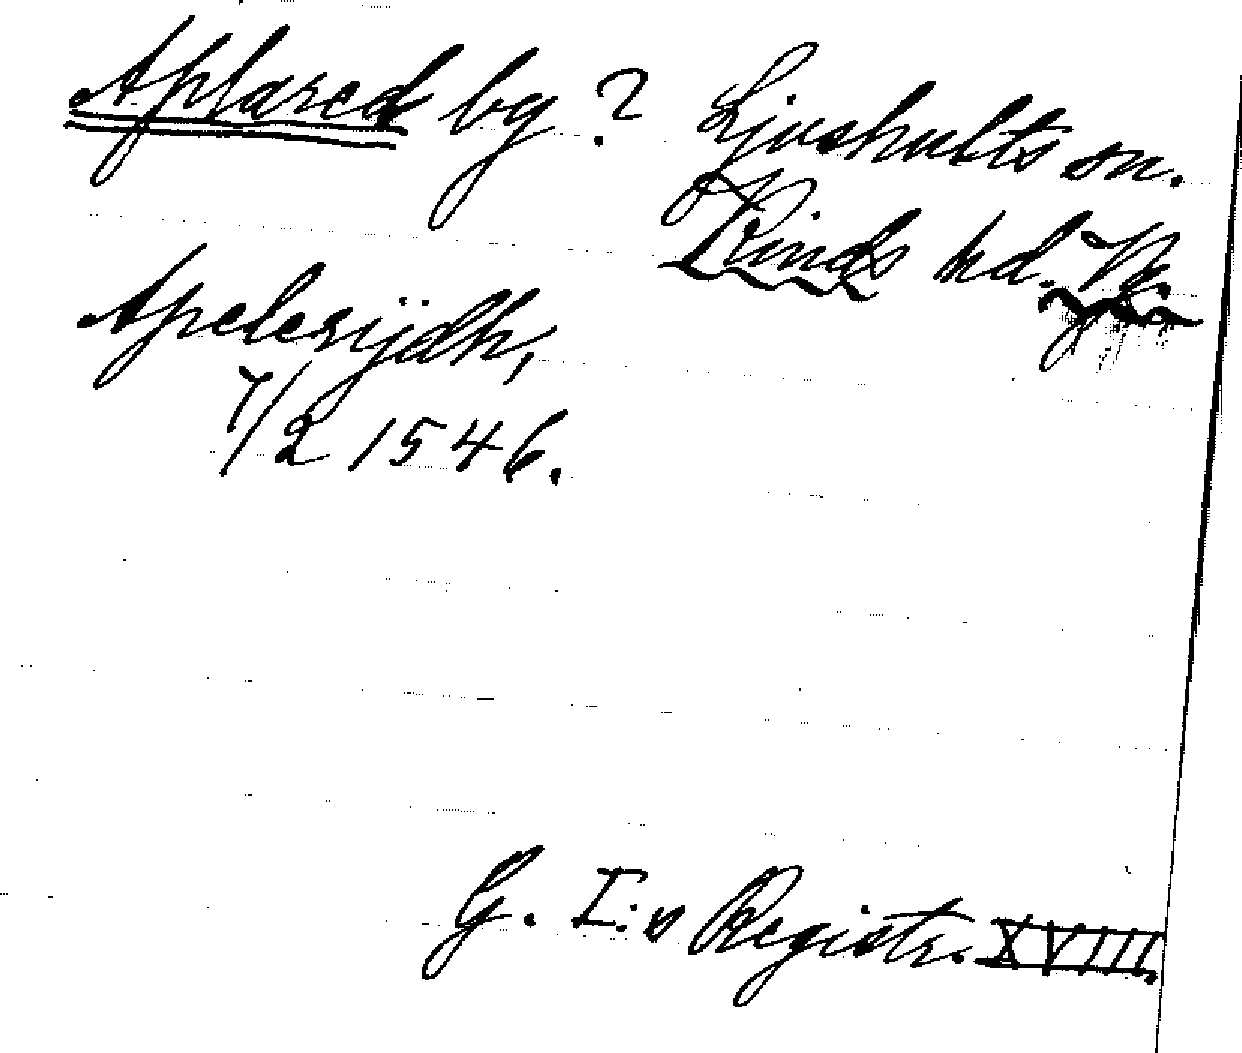 Aplared by ? Ljushults sn.
Kinds hd. Vg.
Apelerijdh,
7/2 1546.
G. I:s Registr. XVIII,